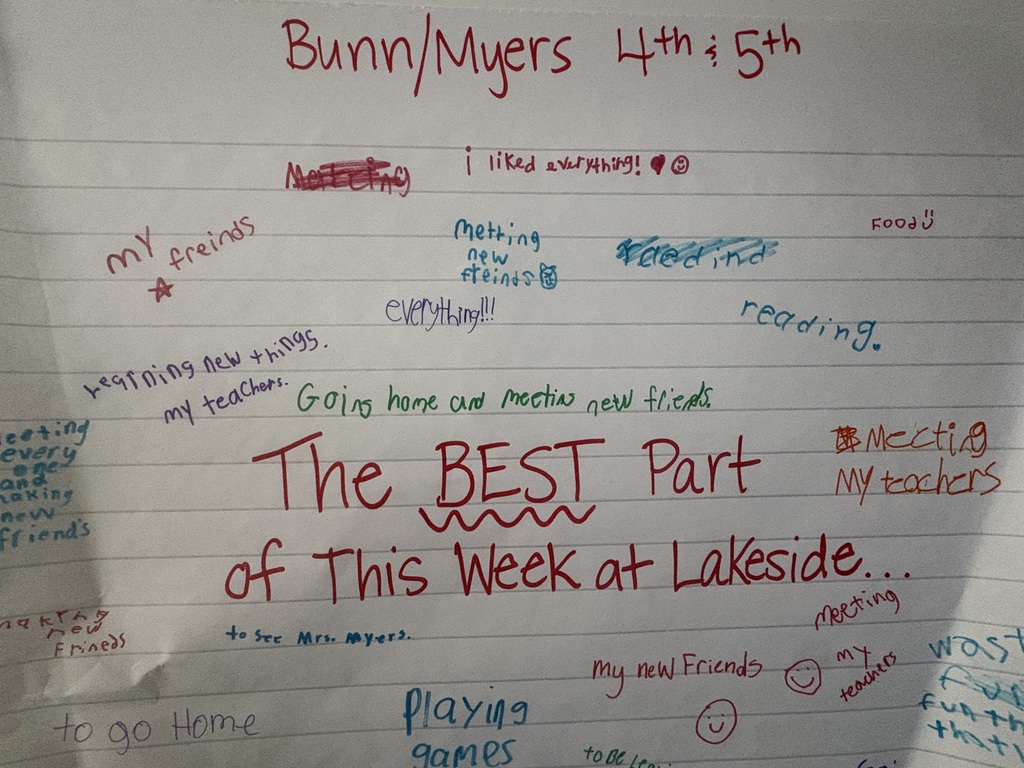 Bunn/Myers 4th & 5th
i liked everything!
Food
my freinds
Metting
new
freinds
everything!!!
reading.
Learning new things.
my teachers.
Going home and meeting new friends.
eeting
every
one
and
making
new
friend's
The BEST Part
of This Week at Lakeside...
Meeting
My teachers
making
new
Frineds
to see Mrs. Myers.
meeting
my
teachers
my new Friends
to go Home
Playing
games
to Be
wast
fun th
that